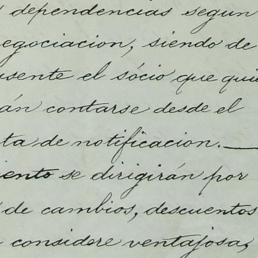 dependencias segun
negociacion, siendo de
el sócio que
contarse desde el
de notificacion.
se dirigirán por
de cambios, descuentos
considere ventajosa,